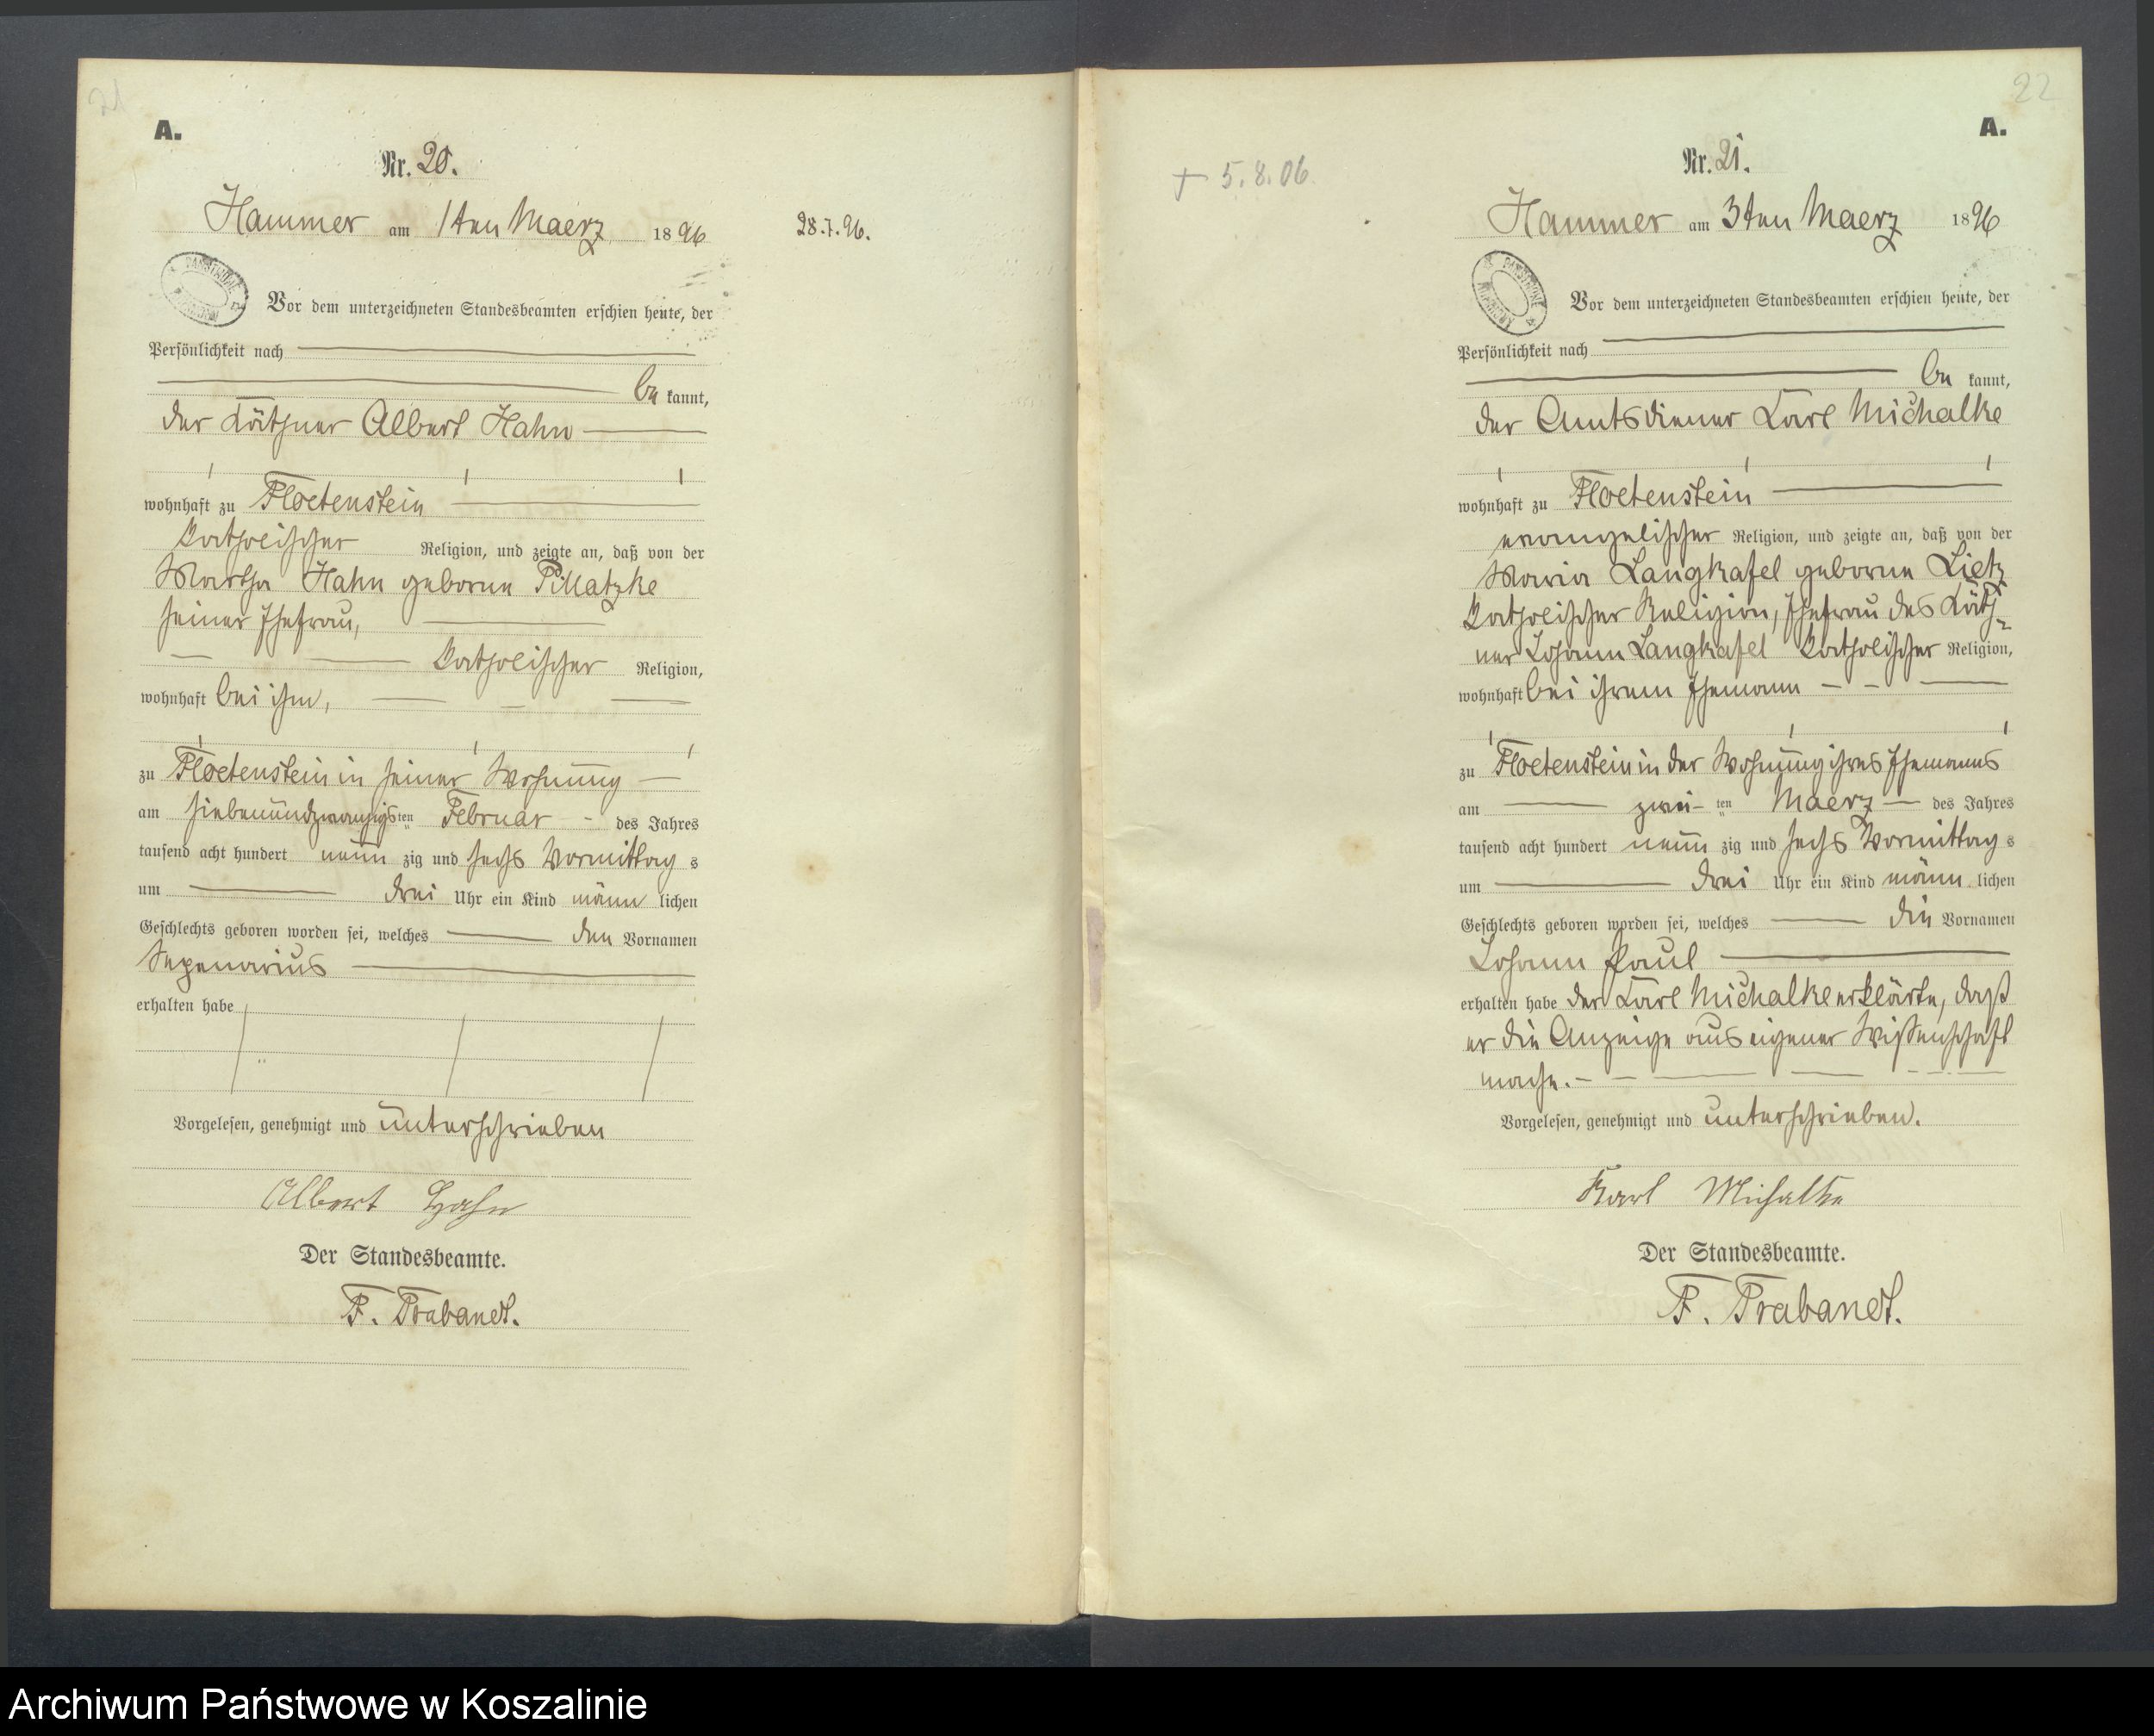 21
A.
Nr. 20.
Hammer am 1ten Maerz 1896
28.7.96.
Vor dem unterzeichneten Standesbeamten erschien heute, der
Persönlichkeit nach
be kannt,
der Käthner Albert Hahn
wohnhaft zu Floetenstein
katholischer Religion, und zeigte an, daß von der
Martha Hahn geborne Pillatzke
seiner Ehefrau,
katholischer Religion,
wohnhaft bei ihm,
zu Floetenstein in seiner Wohnung
am siebenundzwanzigsten Februar des Jahres
tausend acht hundert neun zig und sechs Vormittag s
um drei Uhr ein Kind männ lichen
Geschlechts geboren worden sei, welches den Vornamen
erhalten habe
Vorgelesen, genehmigt und unterschrieben
Albert Hahn
Der Standesbeamte.
F. Trabandt.
22
A.
Nr. 21.
+ 5.8.06.
Hammer am 3ten Maerz 1896
Vor dem unterzeichneten Standesbeamten erschien heute, der
Persönlichkeit nach
be kannt,
der Amtsdiener Karl Michalke
wohnhaft zu Floetenstein
evangelischer Religion, und zeigte an, daß von der
Maria Langkafel geborne Lietz
katholischer Religion, Ehefrau des Käth-
ner Johann Langkafel katholischer Religion,
wohnhaft bei ihrem Ehemann
zu Floetenstein in der Wohnung ihres Ehemanns
am zwei ten Maerz des Jahres
tausend acht hundert neun zig und sechs Vormittag s
um drei Uhr ein Kind männ lichen
Geschlechts geboren worden sei, welches die Vornamen
Johann Paul
erhalten habe der Karl Michalke erklärte, daß
er die Anzeige aus eigener Wissenschaft
mache.
Vorgelesen, genehmigt und unterschrieben.
Karl Michalke
Der Standesbeamte.
F. Trabandt.
Archiwum Państwowe w Koszalinie